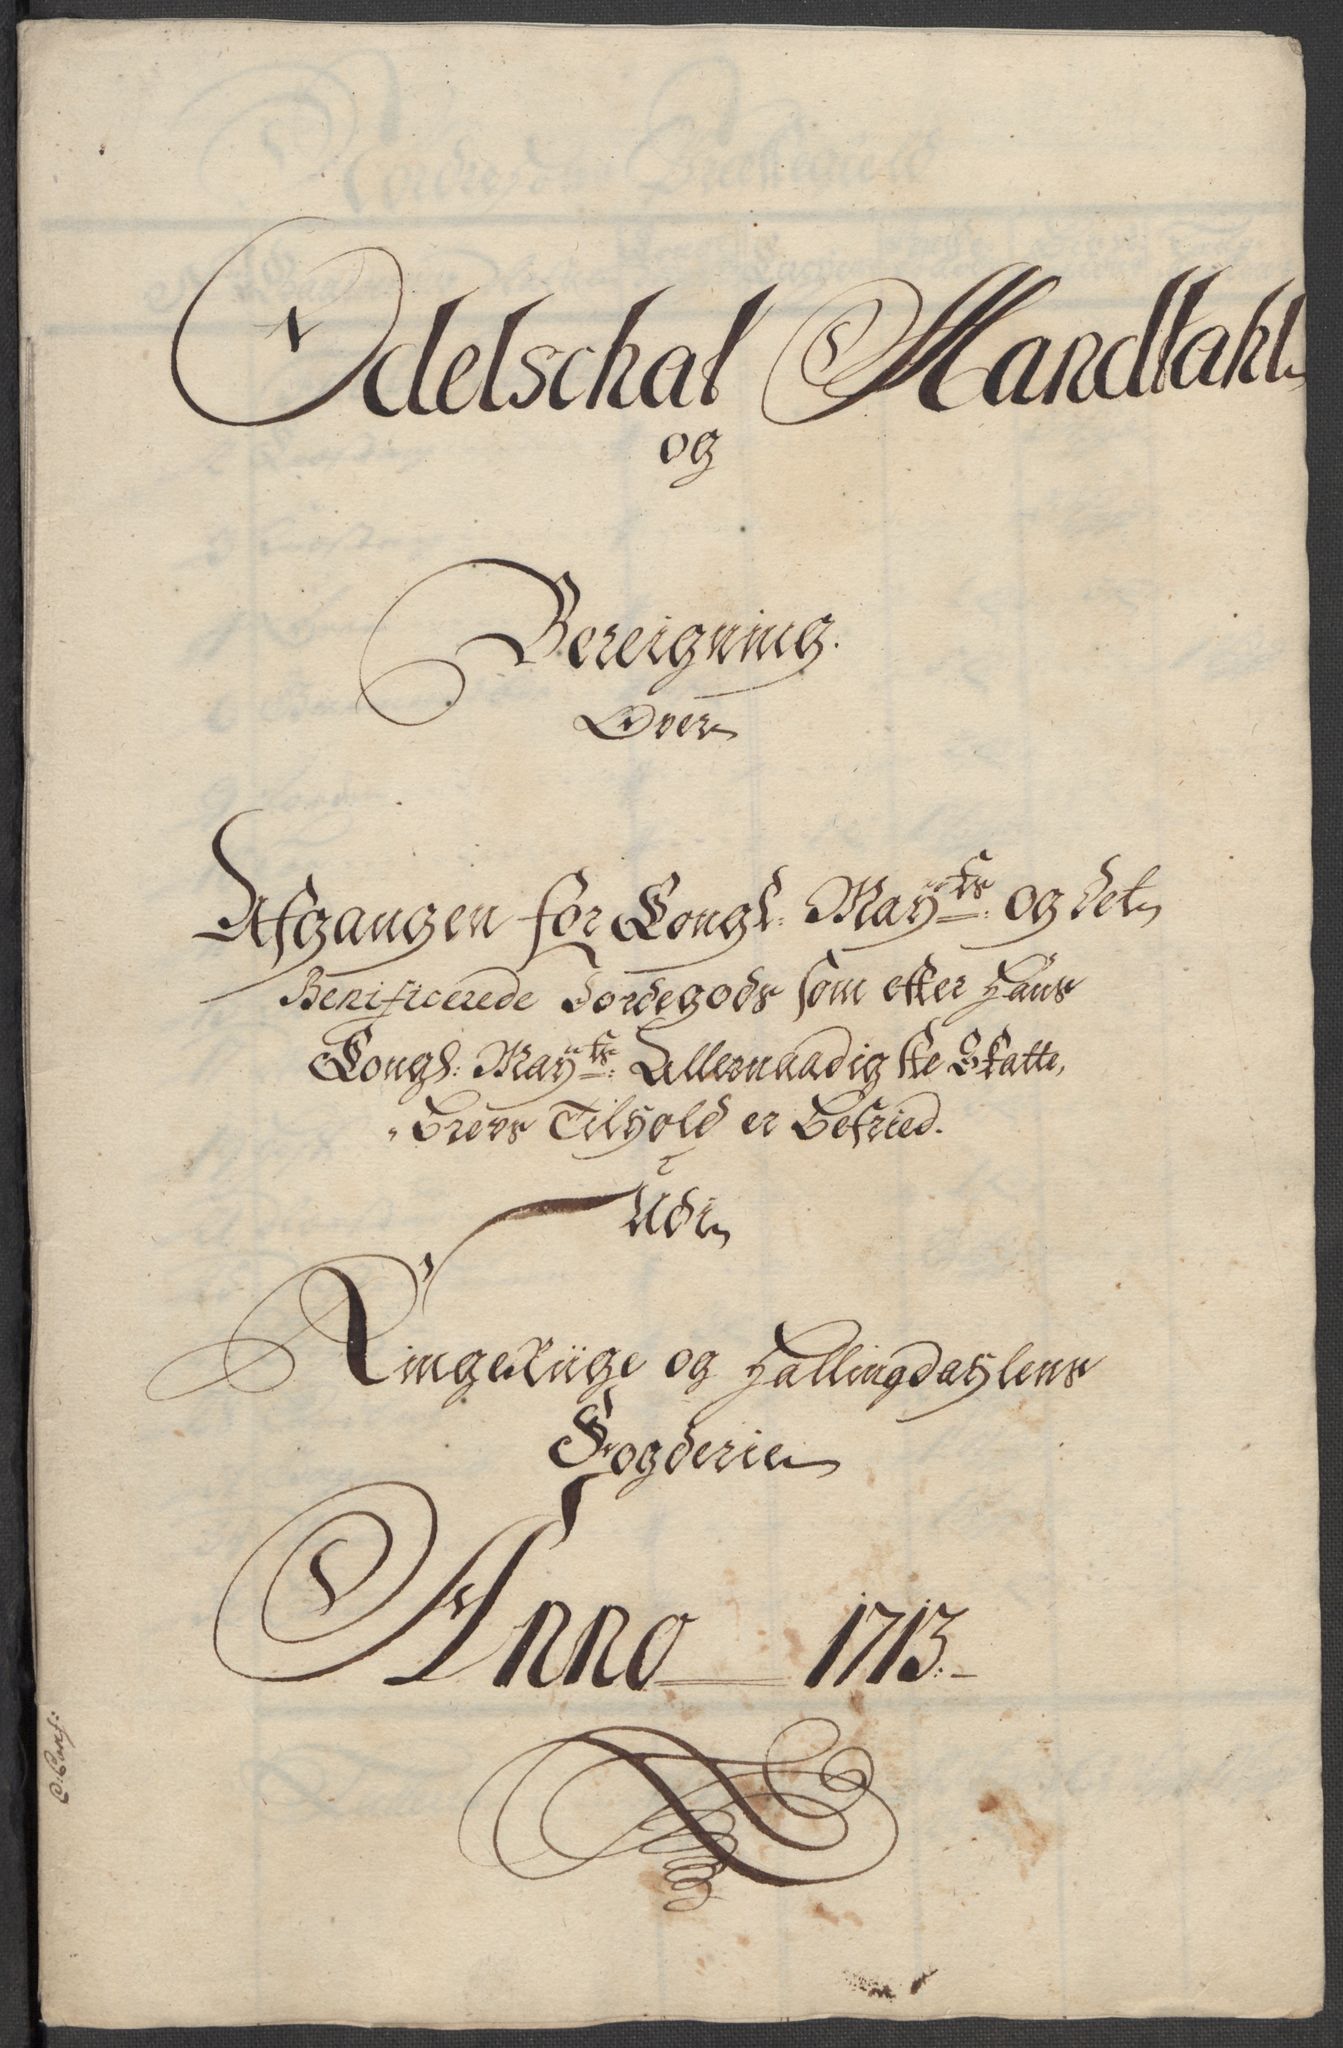 Odelschat Mandtahl
og
Bereigning.
Over
Afgangen for Kongl: Mayts: og det
Benificerede Jordegods som efter Hans
Kongl: Mayts: Allernaadigste Skatte,
„brevs Tilhold er befried.
Udi
Ringerüge og Hallingdahlens
Fogderie
Anno 1713.